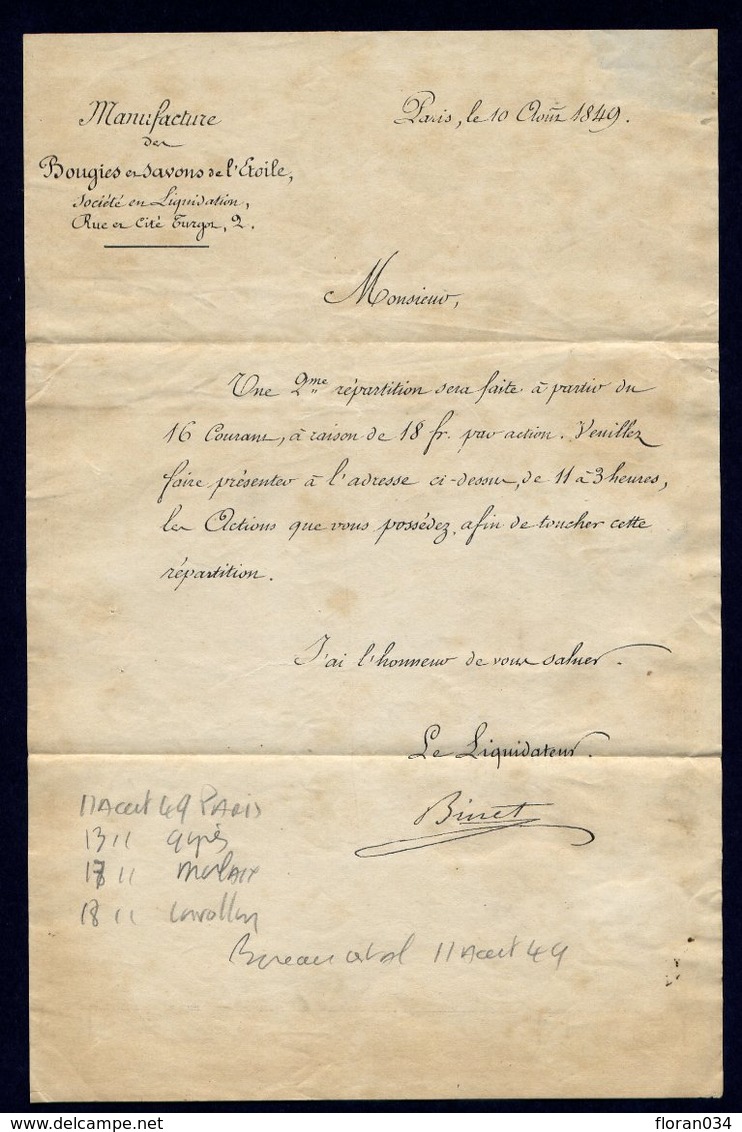 Manufacture
des
Bougies et Savons de l'Etoile,
Société en Liquidation,
Rue et Cité Turgot, 2.
Paris, le 10 Août 1849.
Monsieur,
Une 2me répartition sera faite à partir du
16 Courant, à raison de 18 fr. par action. Veuillez
faire présenter à l'adresse ci-dessus, de 11 à 3 heures,
les Actions que vous possédez, afin de toucher cette
répartition.
J'ai l'honneur de vous saluer.
Le Liquidateur.
Binet
11 Aout 49 PARIS
13 11
11 Morlaix
18 11
Bureau 11 Aout 49
floran034